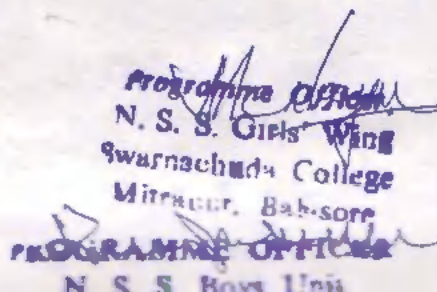 Programme Officer
N. S. S. Girls' Wing
Swarnachuda College
Mitrapur, Balasore
PROGRAMME OFFICER
N. S. S. Boys Unit